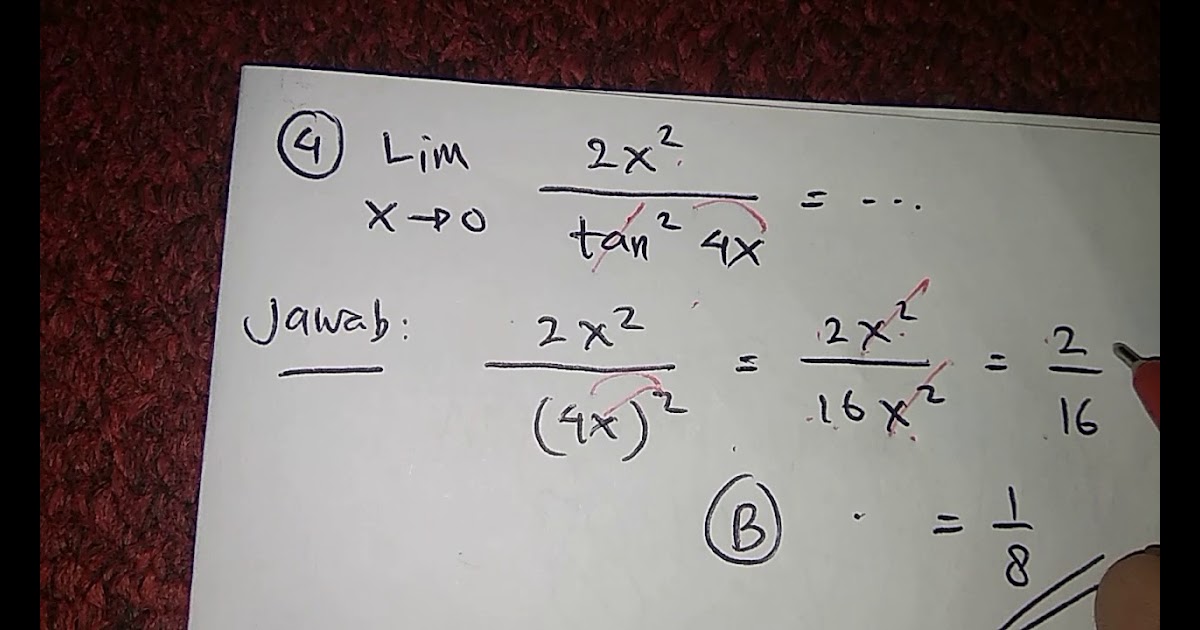 ④ Lim x→0 2x² / tan² 4x = ...
Jawab: 2x² / (4x)² = 2x² / 16x² = 2 / 16
Ⓑ = 1 / 8